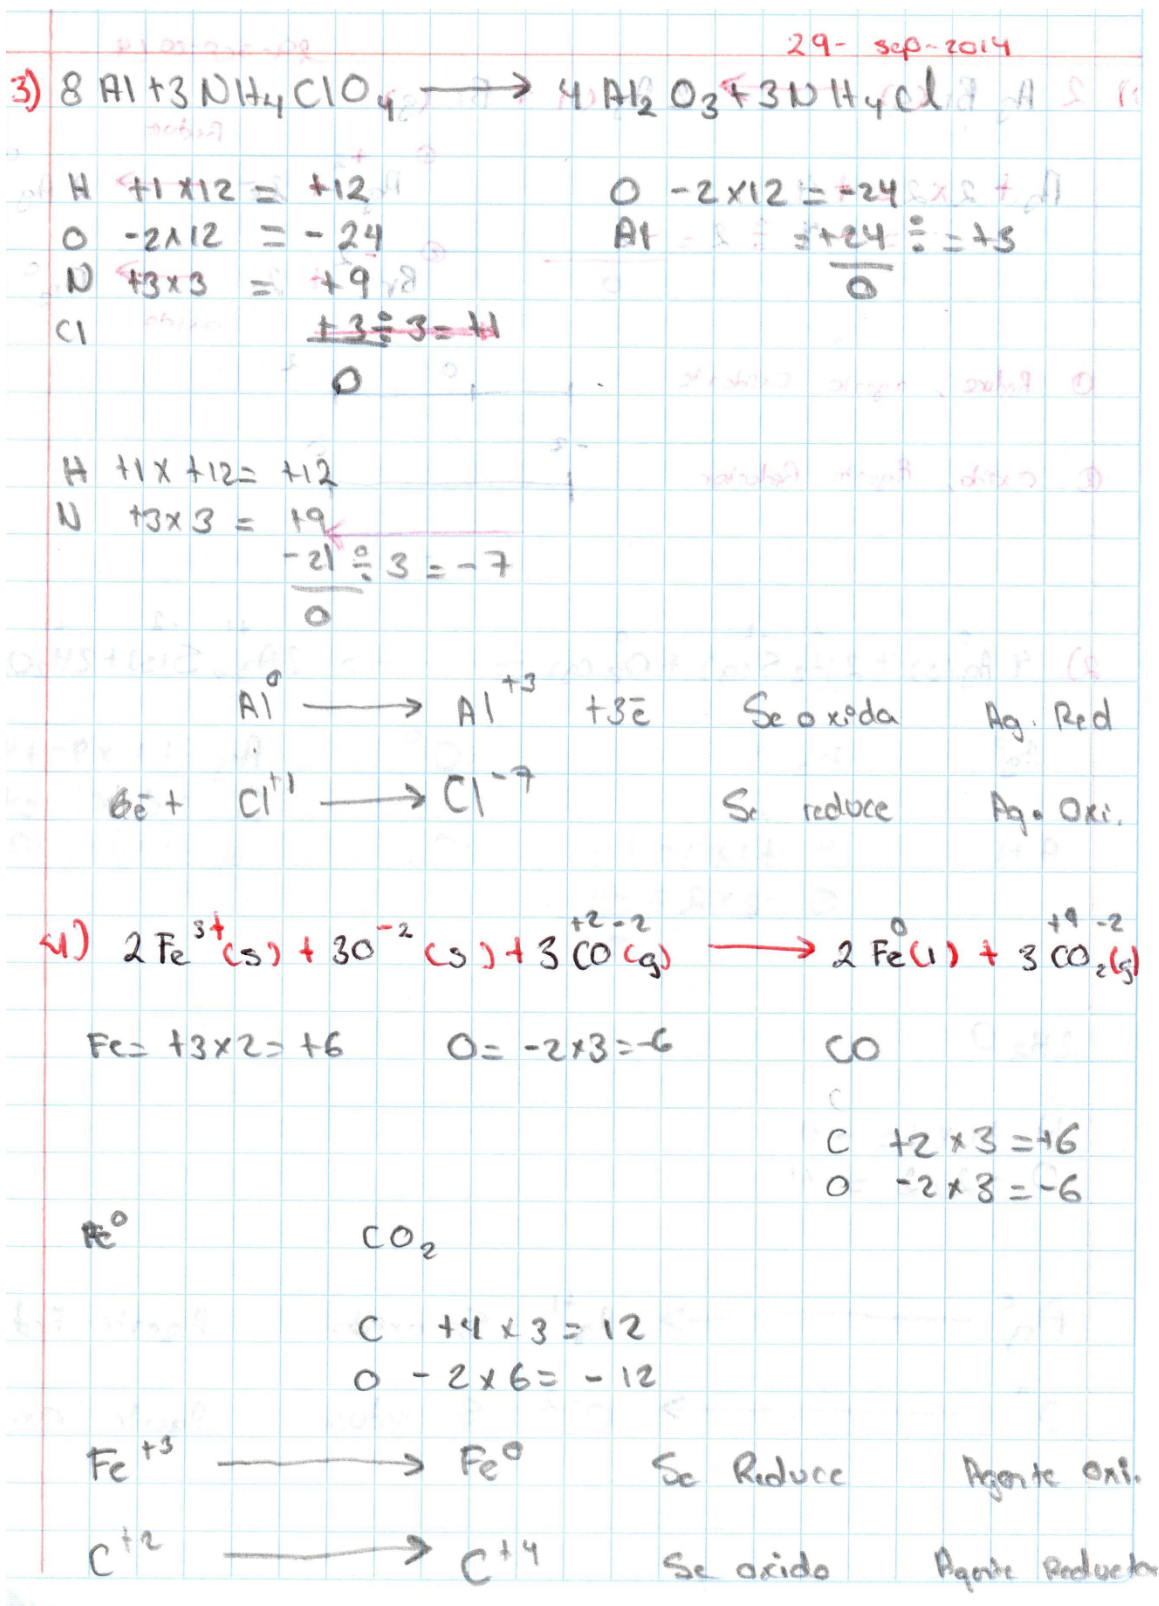 29- sep-2014
3) 8 Al + 3 NH₄ClO₄ ⟶ 4 Al₂O₃ + 3NH₄Cl
H +1 x 12 = +12 O -2 x 12 = -24
O -2 x 12 = - 24 Al = +24 ÷ = +3
N +3 x 3 = +9 0
Cl + 3 ÷ 3 = +1
0
H +1 x +12 = +12
N +3 x 3 = +9
-21 ÷ 3 = -7
0
Al⁰ ⟶ Al⁺³ +3e̅ Se oxida Ag. Red
6e̅ + Cl⁺¹ ⟶ Cl⁻⁷ Se reduce Ag. Oxi.
+2 -2 0 +4 -2
4) 2 Fe³⁺(s) + 3O⁻²(s) + 3 CO(g) ⟶ 2 Fe(l) + 3 CO₂(g)
Fe= +3x2= +6 O= -2x3=-6 CO
C
C +2 x 3 = +6
O -2 x 3 = -6
Fe⁰ CO₂
C +4 x 3 = 12
O - 2 x 6 = - 12
Fe⁺³ ⟶ Fe⁰ Se Reduce Agente oxi.
C⁺² ⟶ C⁺⁴ Se oxido Agente Reductor